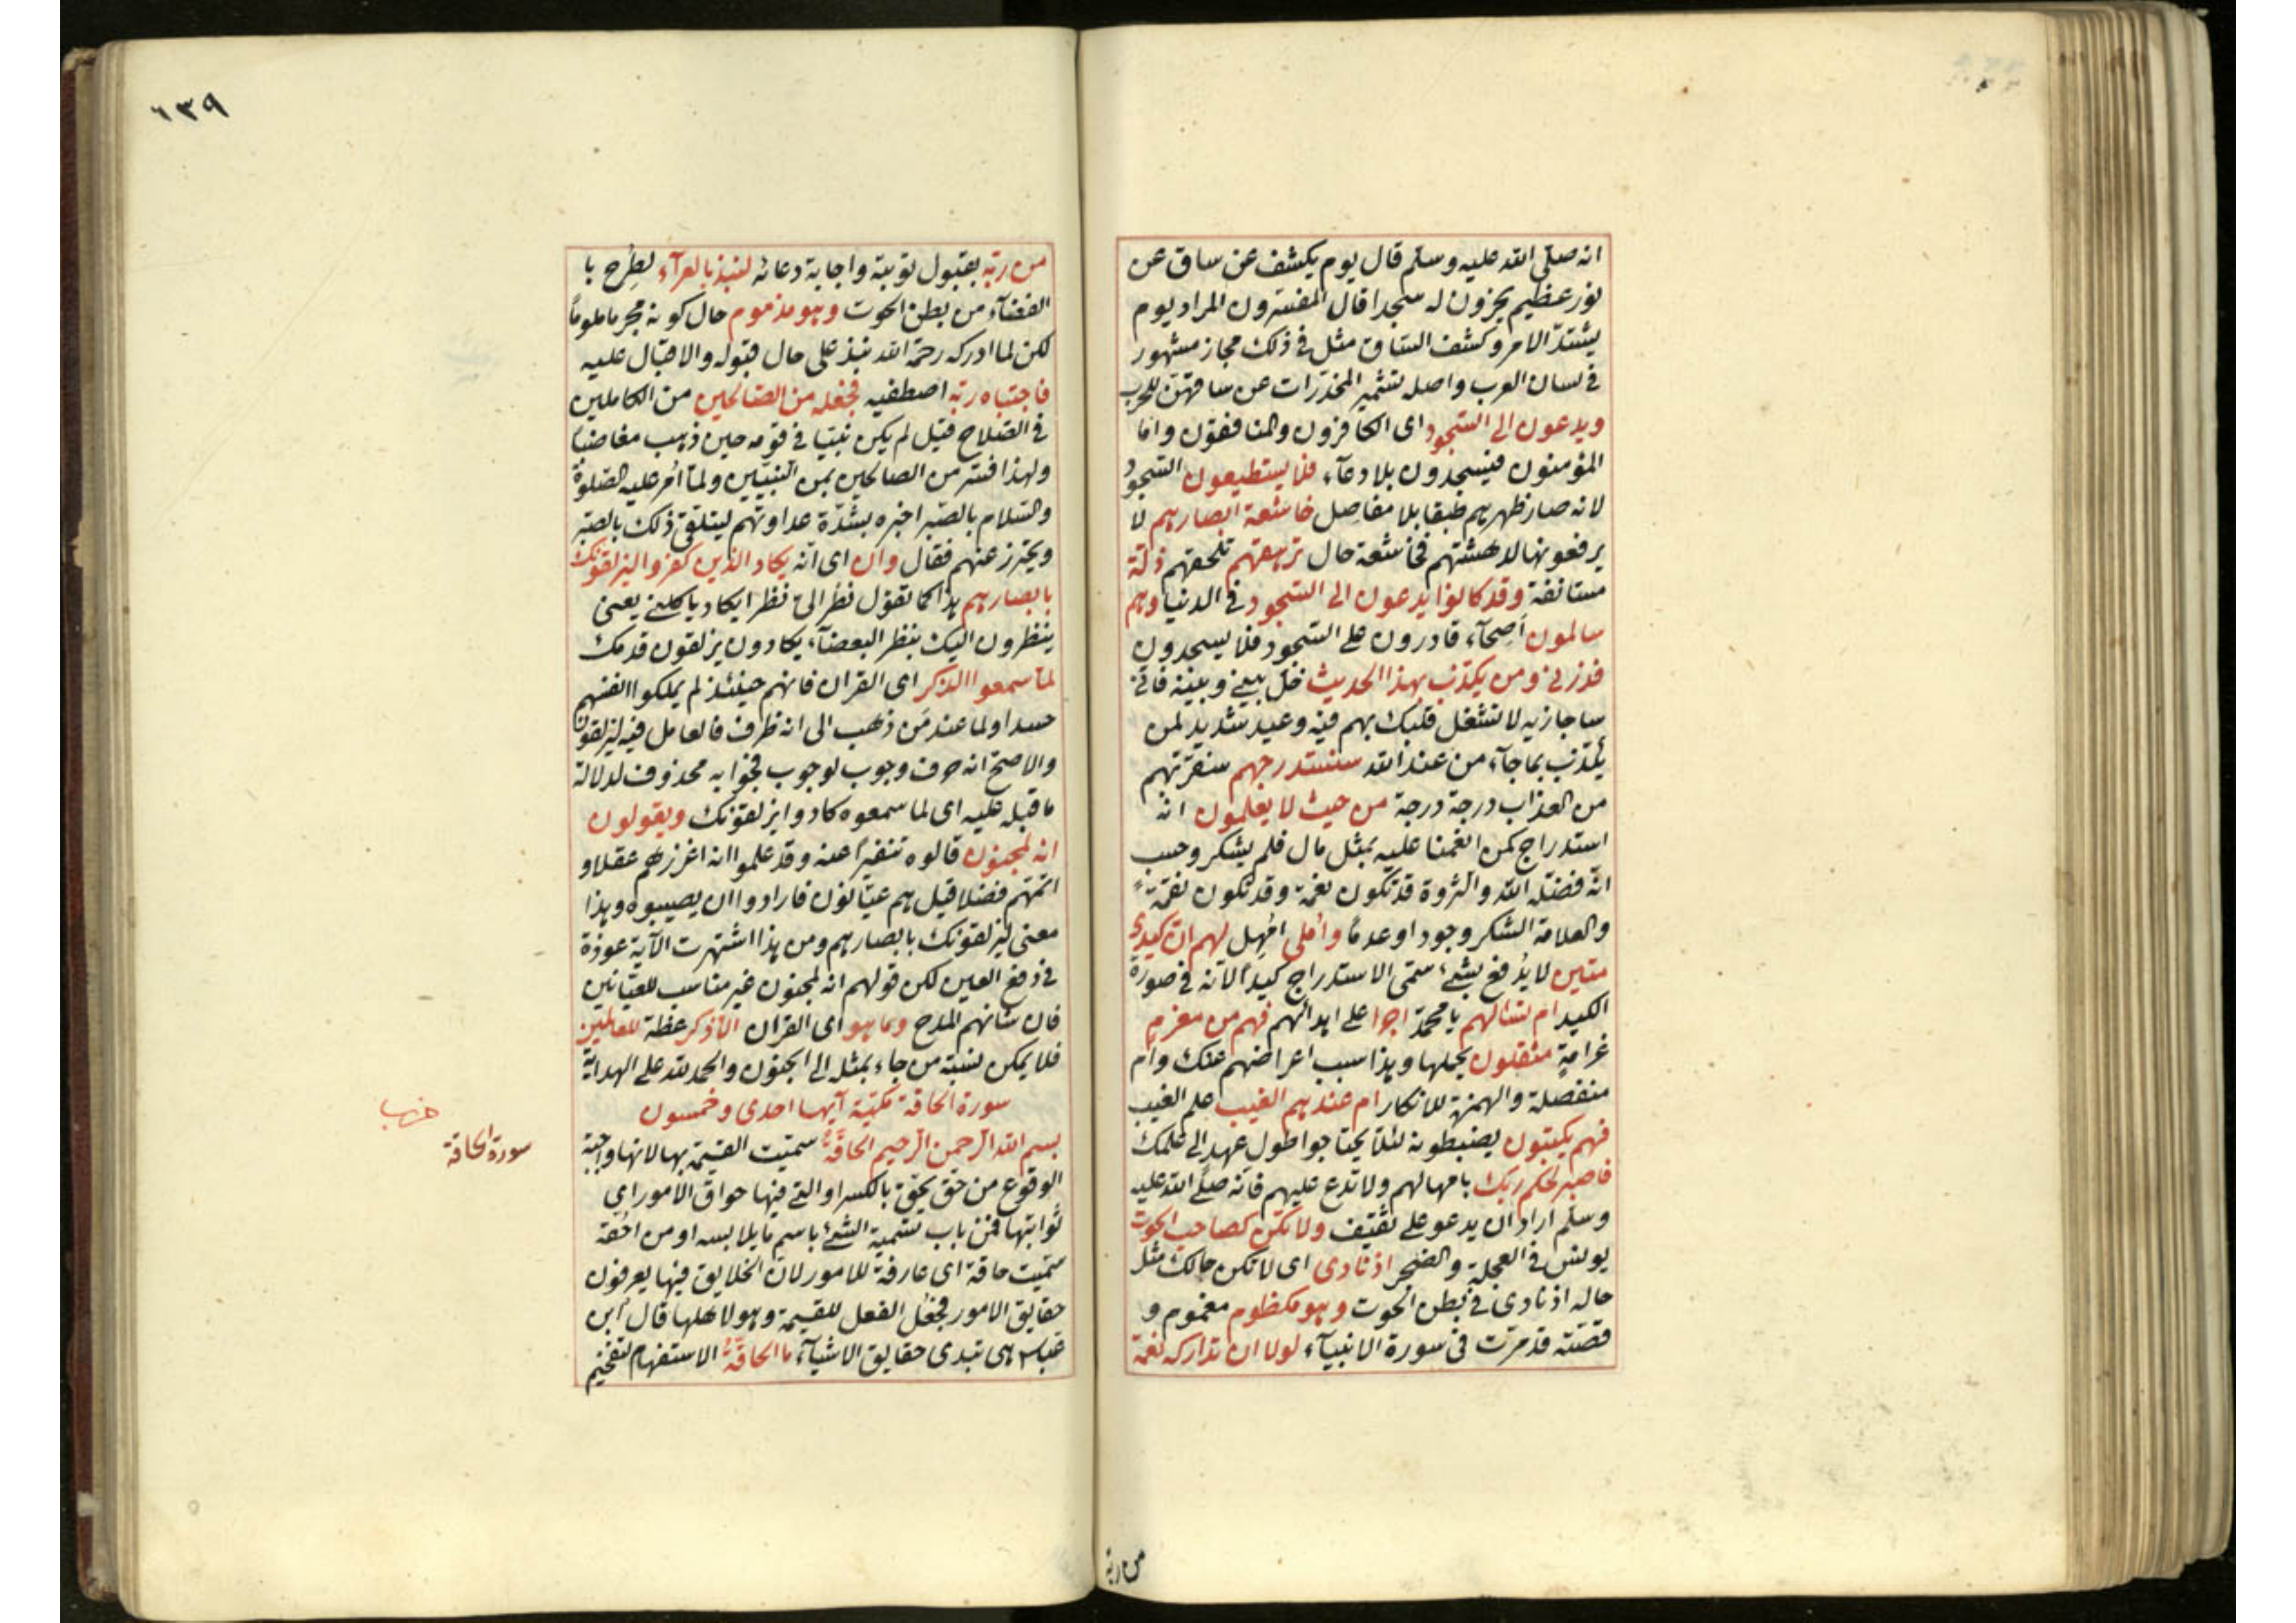 انه صلى الله عليه وسلم قال يوم يكشف عن ساق عن
نور عظيم يخرون له سجدا قال المفسرون المراد يوم
يشتدّ الامر وكشف الساق مثل فى ذلك مجاز مشهور
فى لسان العرب واصله تشمير المخدّرات عن ساقهنّ للحرب
ويدعون الى السّجود اى الكافرون والمنافقون وامّا
المؤمنون فيسجدون بلا دعآء فلا يستطيعون السّجود
لانه صار ظهرهم طبقا بلا مفاصل خاشعة ابصارهم لا
يرفعونها لدهشتهم فخاشعة حال ترهقهم تلحقهم ذلّة
مستانفة وقد كانوا يدعون الى السّجود فى الدنيا وهم
سالمون اَصِحآء قادرون على السّجود فلا يسجدون
فذرنى ومن يكذّب بهذا الحديث خلّ بينى وبينه فانى
ساجازيه لا تشغل قلبك بهم فيه وعيد شديد لمن
يكذّب بما جآء من عند الله سنستدرجهم سنقرّبهم
من العذاب درجة درجة من حيث لا يعلمون انه
استدراج كمن انعمنا عليه بمثل مال فلم يشكر وحسب
انّه فضّله الله والثروة قد تكون نعمة وقد تكون نقمة
والعلامة الشكر وجودا وعدمًا واُملى اُمهِل لهم انّ كيدى
متين لا يُدفع بشئ سمّى الاستدراج كيدًا لانّه فى صورة
الكيد ام تسالهم يا محمّد اجرا على ابدائهم فهم من مغرم
غرامةٍ مثقلون بحملها وهذا سبب اعراضهم عنك وام
منفصلة والهمزة للانكار ام عندهم الغيب علم الغيب
فهم يكتبون يضبطونه لئلّا يحتاجوا طول عهد الى علمك
فاصبر لحكم ربّك بامهالهم ولا تدع عليهم فانه صلّى الله عليه
وسلّم اراد ان يدعو على ثقيف ولا تكن كصاحب الحوت
يونس فى العجلة والضجر اذ نادى اى لا تكن حالك مثل
حاله اذ نادى فى بطن الحوت وهو مكظوم مغموم و
قصّته قد مرّت فى سورة الانبيآء لولا ان تداركه نعمة
من ربه
٦٣٩
من ربّه بقبول توبته واجابة دعائه لنبذ بالعرآء لطُرِح با
الفضآء من بطن الحوت وهو مذموم حال كونه مجرما ملومًا
لكن لما ادركه رحمة الله نبذ على حال قبوله والاقبال عليه
فاجتباه ربّه اصطفيه فجعله من الصّالحين من الكاملين
فى الصّلاح قيل لم يكن نبيّا فى قومه حين ذهب مغاضبًا
ولهذا فسّر من الصالحين بمن النّبيّين ولمّا اُمر عليه الصّلوة
والسّلام بالصّبر اخبره بشدّة عداوتهم ليتلقّى ذلك بالصّبر
ويحترز عنهم فقال وان اى انّه يكاد الذين كفروا ليزلقونك
بابصارهم هذا كما تقول نظر الىّ نظرا يكاد ياكلنى يعنى
ينظرون اليك بنظر البغضآء يكادون يزلقون قدمك
لمّا سمعوا الذّكر اى القران فانهم حينئذ لم يملكوا انفسهم
حسدا ولما عند مَن ذهب الى انه ظرف فالعامل فيه ليزلقونك
والاصحّ انه حرف وجوب لوجوب فجوابه محذوف لدلالة
ما قبله عليه اى لما سمعوه كادوا يزلقونك ويقولون
انه لمجنون قالوه تنفيرًا عنه وقد علموا انه اغزرهم عقلا و
اتمّهم فضلا قيل هم عيّانون فارادوا ان يصيبوه وهذا
معنى ليزلقونك بابصارهم ومن هذا اشتهرت الآية عوذة
فى دفع العين لكن قولهم انه لمجنون غير مناسب للعيّانين
فان شانهم المدح وما هو اى القران الّا ذكر عظة للعالمين
فلا يمكن نسبة من جاء بمثله الى الجنون والحمد لله على الهداية
سورة الحاقة مكّيّة آيها احدى وخمسون
بسم الله الرّحمن الرّحيم الحاقّةُ سمّيت القيمة بها لانها واجبة
الوقوع من حقّ يحقّ بالكسر او التى فيها حواقّ الامور اى
ثوابتها فمن باب تسمية الشئ باسم ما يلابسه او من احقّه
سمّيت حاقة اى عارفة للامور لانّ الخلايق فيها يعرفون
حقايق الامور فجُعل الفعل للقيمة وهو لاهلها قال ابن
عبّاس هى تبدى حقايق الاشيآء ما الحاقّةُ الاستفهام لتفخيم
سورة الحاقة